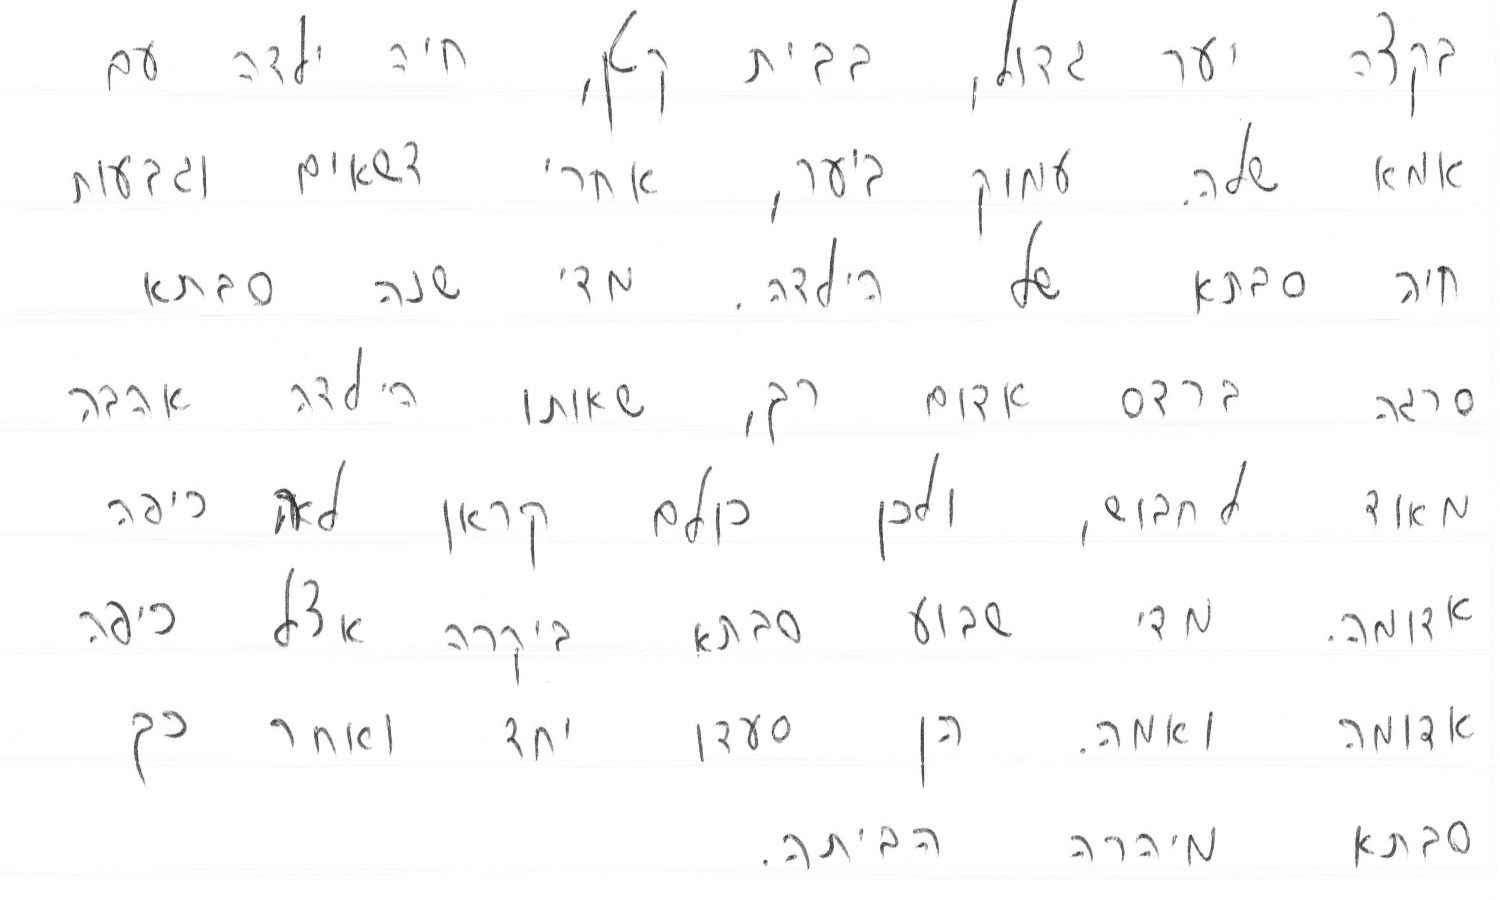 בקצה יער גדול, בבית קטן, חיה ילדה עם
אמא שלה. עמוק ביער, אחרי דשאים וגבעות
חיה סבתא של הילדה. מדי שנה סבתא
סרגה ברדס אדום רך, שאותו הילדה אהבה
מאוד לחבוש, ולכן כולם קראו לה כיפה
אדומה. מדי שבוע סבתא ביקרה אצל כיפה
אדומה ואמה. הן סעדו יחד ואחר כך
סבתא מיהרה הביתה.